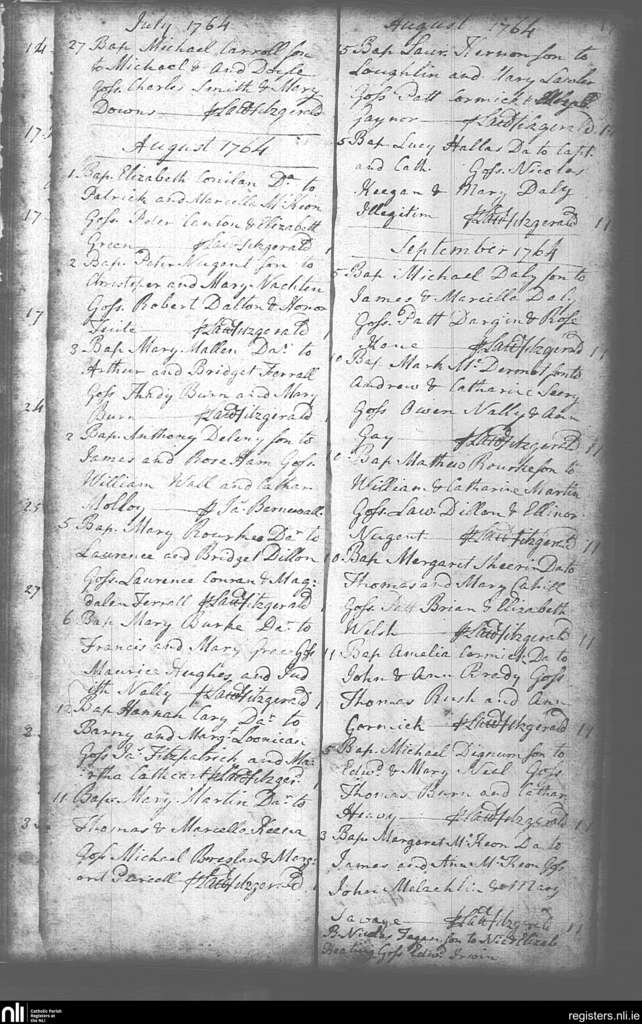 July 1764
14
27 Bap. Michael Carroll son
to Michael & And Doyle
Goss. Charles Smith & Mary
Downs — Law: fitzgerald
17
August 1764
1 Bap. Elizabeth Conilan Da. to
Patrick and Marcella McKeon
17
Goss Peter Canton & Elizabeth
Green — Law: fitzgerald
2 Bap. Peter Nugent son to
Christoper and Mary
Goss. Robert Dalton & Honor
17
Law: fitzgerald
3 Bap. Mary Mallen Da. to
Arthur and Bridget Ferrall
Goss Thady Burn and Mary
24
Burn — Law: fitzgerald
2 Bap. Anthony Deleny son to
James and Rose Ham Goss.
William Wall and Cathar.
Molloy — Ja. Bernewall
25
5 Bap. Mary Rourke Da. to
Laurence and Bridget Dillon
Goss. Laurence Conran & Mag:
27
dalen Ferrall Law: fitzgerald
6 Bap Mary Burke Da. to
Francis and Mary Grace Goss
Maurice Hughes, and Jud
ith Nally Law: fitzgerald
12 Bap. Hannah Cary Da. to
2
Barny and Margt. Loonican
Goss Ja. Fitzpatrick, and Ma:
rtha Cathcart Law: fitzger.
11 Bap. Mary Martin Da. to
3
Thomas & Marcella Keena
Goss Michael Breglan & Marg:
aret Parcell Law: fitzgerald
August 1764
5 Bap. Lawr. Kernon son to
Loughlin and Mary Lawler
Goss Patt Cormick &
Gaynor — Law: fitzgerald 11
5 Bap Lucy Hallas Da to Capt.
and Cath. Goss. Nicolas
Keegan & Mary Daly
Illegitim Law: fitzgerald 11
September 1764
5 Bap Michael Daly son to
James & Marcella Daly
Goss. Patt Dargin & Rose
Kone — Law: fitzgerald 11
10 Bap. Mark McDermot son to
Andrew & Catharine Seery
Goss Owen Nally & Ann
Gay — Law: fitzgerald 11
Bap Mathew Rourke son to
William & Catharine Martin
Goss. Law. Dillon & Ellinor
Nugent — Law: fitzgerald 11
10 Bap. Mergaret Sheerin Da to
Thomas and Mary Cahill
Goss Patt Brian & Elizabeth
Welsh — Law: fitzgerald 11
11 Bap Amelia Cormick Da to
John & Ann Brady Goss
Thomas Rush and Ann
Cormick — Law: fitzgerald 11
5 Bap. Michael Dignum son to
Edwd. & Mary Neel Goss
Thomas Burn and Cathar.
Heavy — Law: fitzgerald 11
3 Bap. Margaret McKeon Da to
James and Ann McKeon Goss
John Melachlin & Mary
Savage — Law: fitzgerald 11
B. Nicolas Fagan son to Nic. & Elizab.
Keating Goss Edwd. Irwin
nli
Catholic Parish
Registers at
the NLI
registers.nli.ie